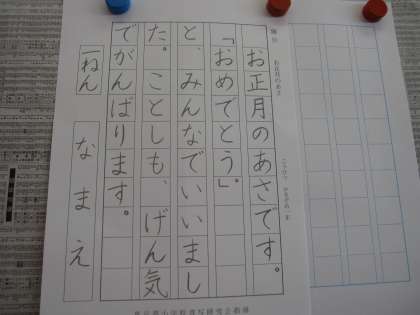 お正月のあさです。
「おめでとう」。
と、みんなでいいまし
た。ことしも、げん気
でがんばります。
一ねん
なまえ